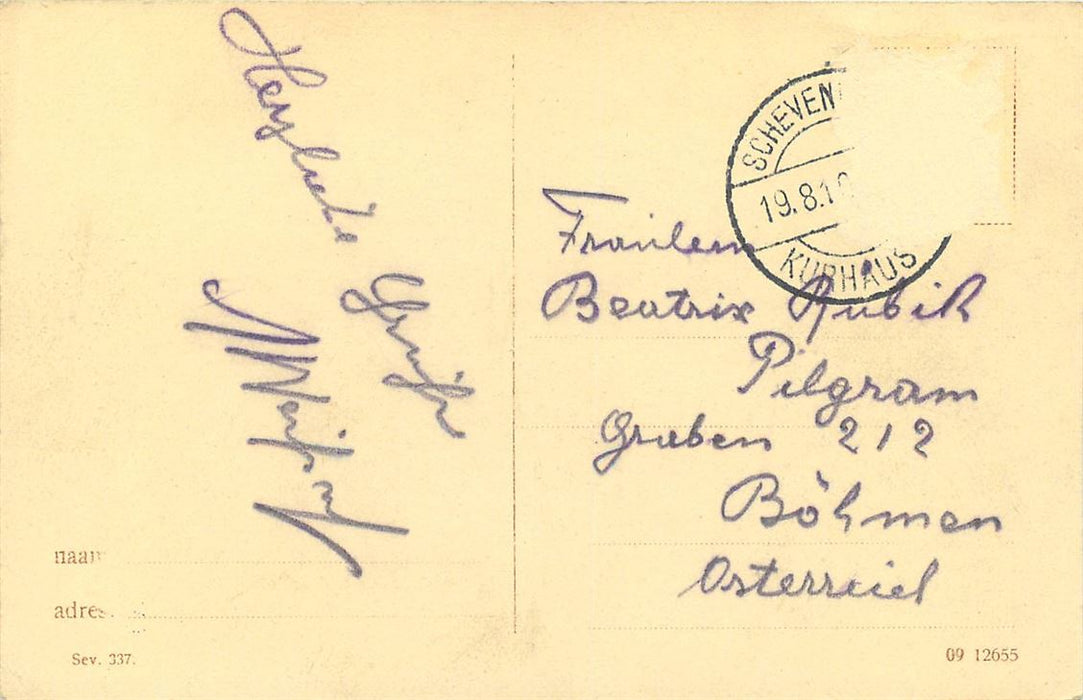 Herzliche
Grüße
SCHEVEN
19.8.1
KURHAUS
Fräulein
Beatrix Rubik
Pilgram
Graben 212
Böhmen
Österreich
naam
adres
Sev. 337.
09 12655